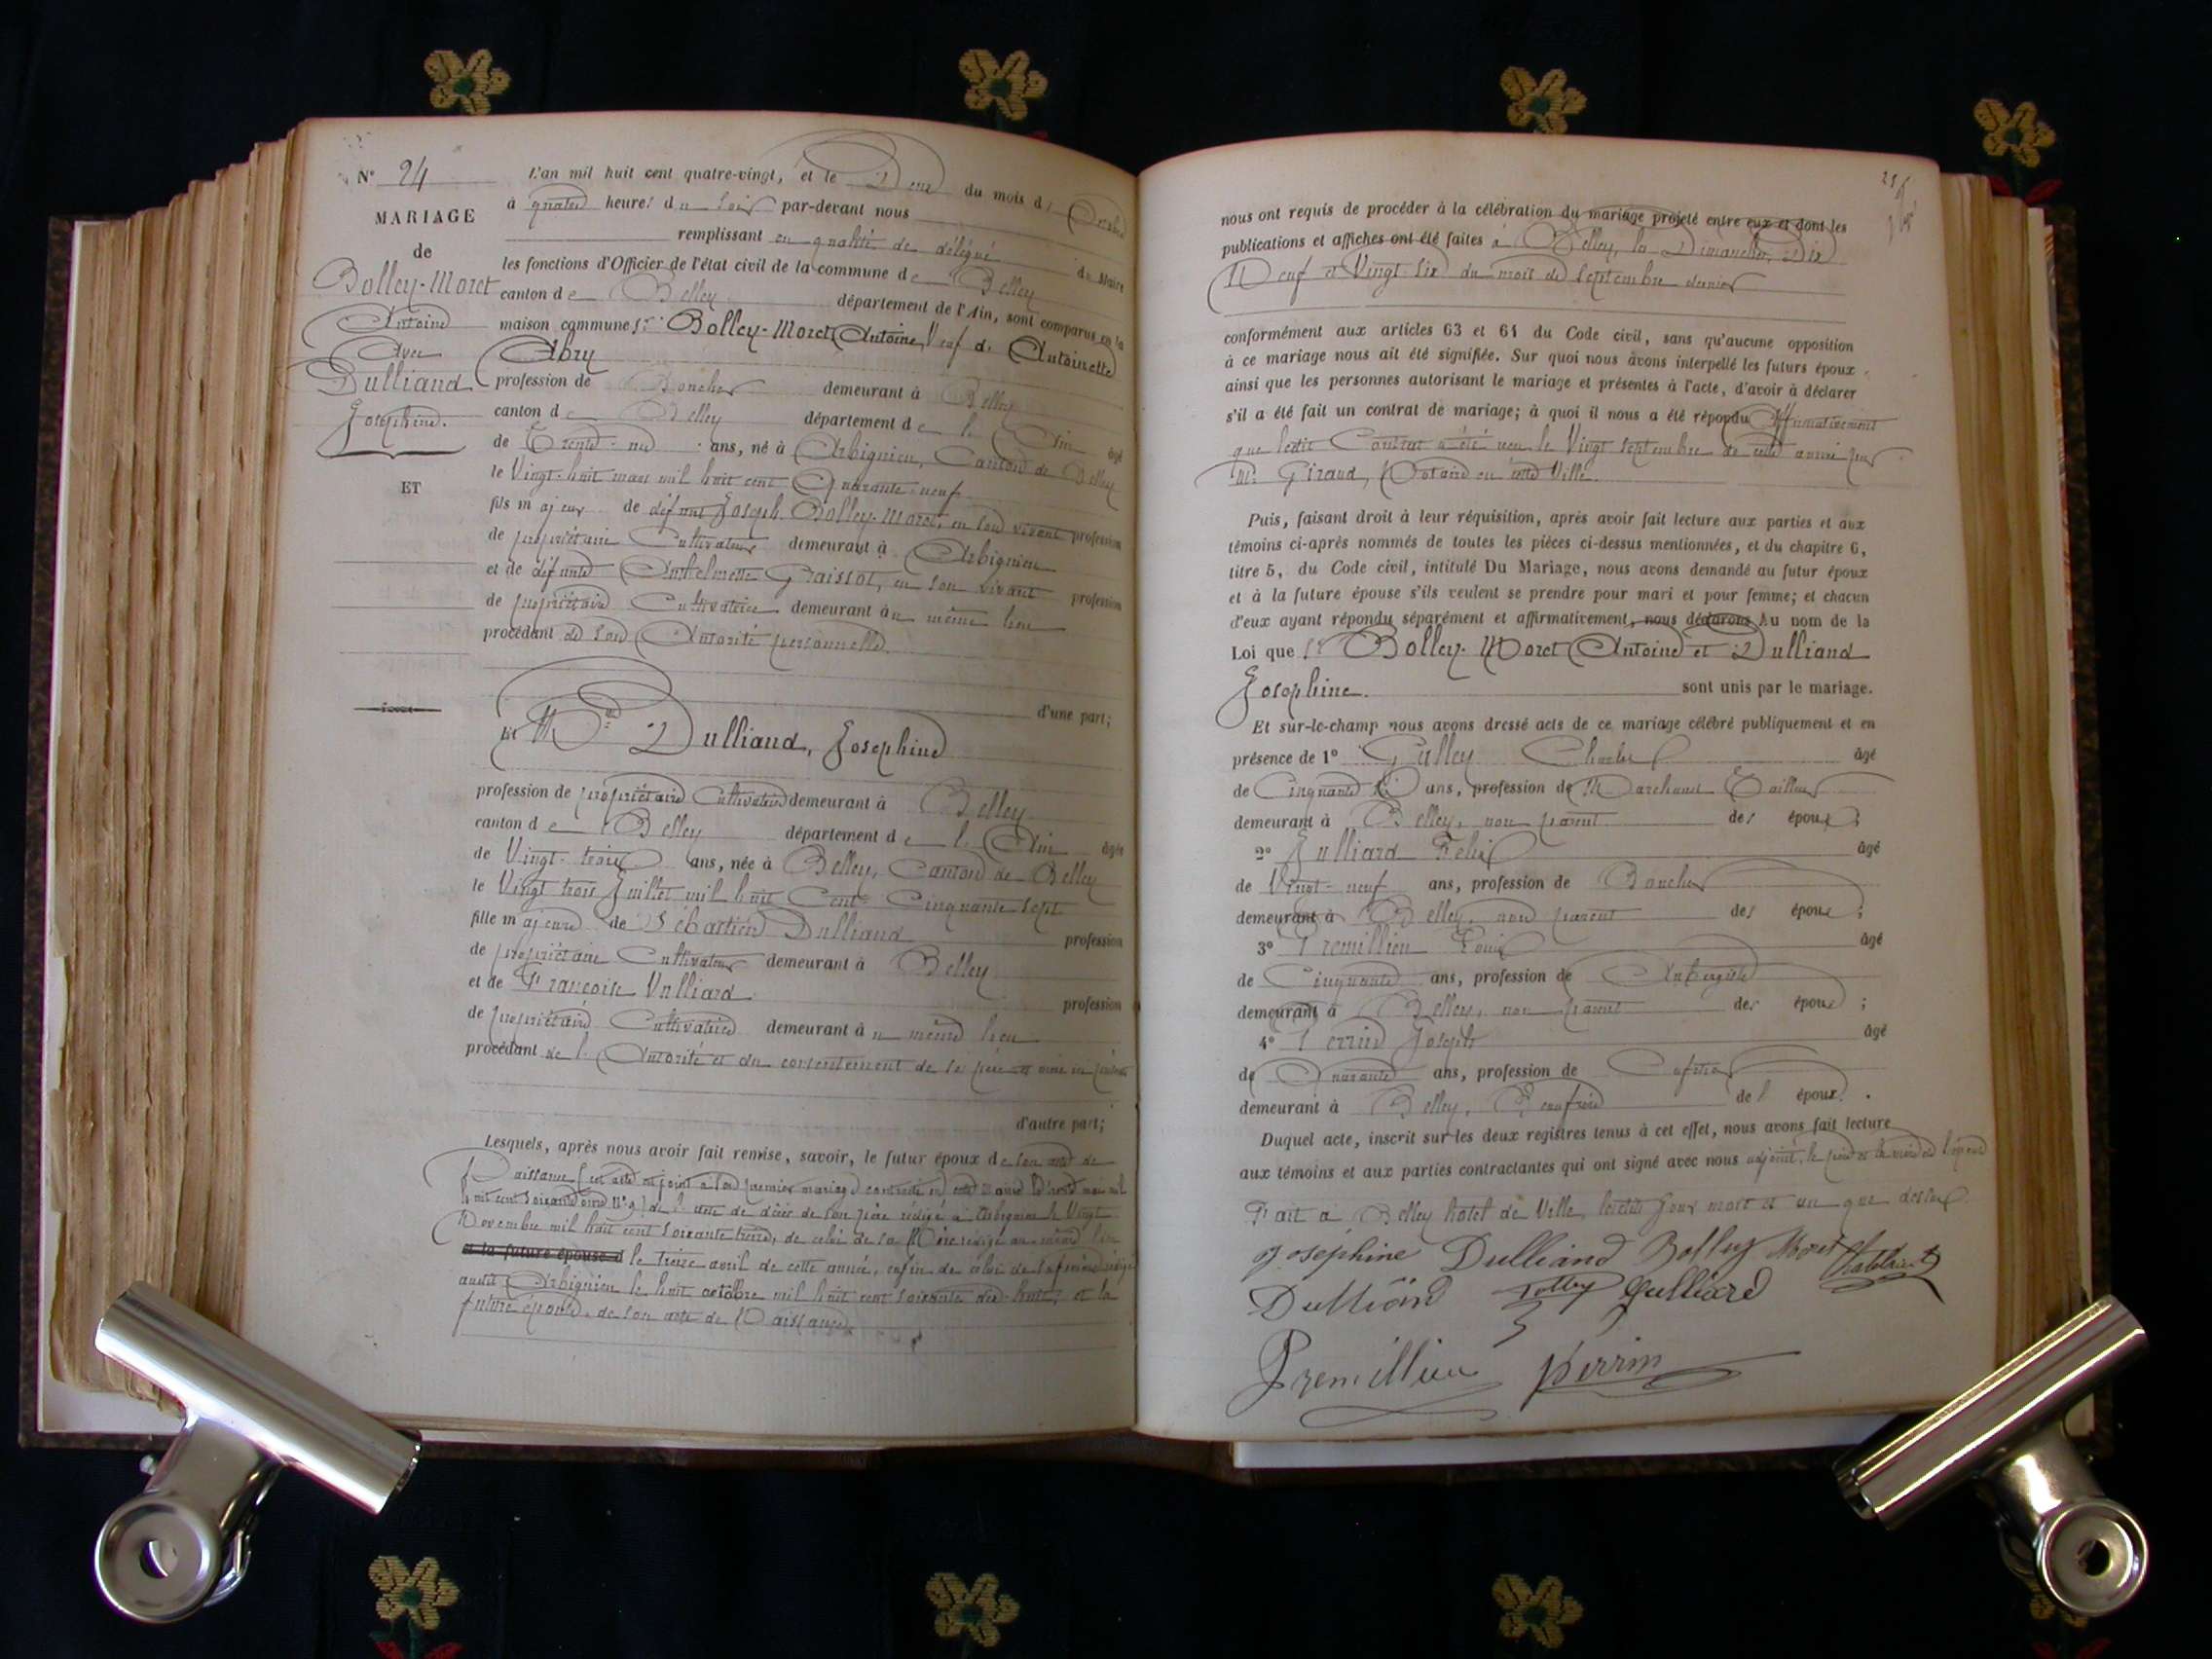 N° 24
MARIAGE
de
Bolley-Moret
Antoine
Avec
Dulliand
Joséphine.
ET
L'an mil huit cent quatre-vingt, et le Deux du mois d' Octobre
à quatre heures du soir par-devant nous
remplissant en qualité de délégué du Maire
les fonctions d'Officier de l'état civil de la commune de Belley
canton de Belley département de l'Ain, sont comparus en la
maison commune Sr Bolley-Moret Antoine, Veuf de Antoinette
Abry
profession de Boucher demeurant à Belley
canton de Belley département de l'Ain âgé
de Trente-un ans, né à Arbignieu, Canton de Belley
le Vingt-huit mars mil huit cent Quarante-neuf
fils majeur de défunt Joseph Bolley-Moret, en son vivant profession
de propriétaire Cultivateur demeurant à Arbignieu
et de défunte Anthelmette Graissot, en son vivant profession
de propriétaire Cultivatrice demeurant au même lieu
procédant de son Autorité personnelle.
d'une part;
Et Dulliand, Joséphine
profession de propriétaire Cultivatrice demeurant à Belley
canton de Belley département de l'Ain âgée
de Vingt-trois ans, née à Belley, Canton de Belley
le Vingt trois Juillet mil huit Cent Cinquante-sept
fille majeure de Sébastien Dulliand profession
de propriétaire Cultivateur demeurant à Belley
et de Françoise Vulliard profession
de propriétaire Cultivatrice demeurant au même lieu
procédant de l'Autorité et du consentement de ses père et mère ici présents
d'autre part;
Lesquels, après nous avoir fait remise, savoir, le futur époux de son acte de
Naissance (cet acte est joint à son premier mariage contracté en cette mairie
huit cent soixante onze N° 9) de l'acte de décès de son père rédigé à Arbignieu le Vingt
Novembre mil huit cent soixante treize, de celui de sa Mère rédigé au même lieu
et la future épouse d le treize avril de cette année, enfin de celui de sa femme rédigé
audit Arbignieu le huit octobre mil huit cent soixante dix-huit, et la
future épouse, de son acte de Naissance.
nous ont requis de procéder à la célébration du mariage projeté entre eux et dont les
publications et affiches ont été faites à Belley, les Dimanches Dix
Neuf et Vingt-six du mois de Septembre dernier
conformément aux articles 63 et 64 du Code civil, sans qu'aucune opposition
à ce mariage nous ait été signifiée. Sur quoi nous avons interpellé les futurs époux
ainsi que les personnes autorisant le mariage et présentes à l'acte, d'avoir à déclarer
s'il a été fait un contrat de mariage; à quoi il nous a été répondu Affirmativement
que ledit Contrat a été reçu le Vingt septembre de cette année par
Me Giraud, Notaire en cette Ville.
Puis, faisant droit à leur réquisition, après avoir fait lecture aux parties et aux
témoins ci-après nommés de toutes les pièces ci-dessus mentionnées, et du chapitre 6,
titre 5, du Code civil, intitulé Du Mariage, nous avons demandé au futur époux
et à la future épouse s'ils veulent se prendre pour mari et pour femme; et chacun
d'eux ayant répondu séparément et affirmativement, nous déclarons Au nom de la
Loi que Sr Bolley-Moret Antoine et Dulliand
Joséphine. sont unis par le mariage.
Et sur-le-champ nous avons dressé acte de ce mariage célébré publiquement et en
présence de 1° Charles âgé
de Cinquante ans, profession de Marchand Tailleur
demeurant à Belley, non parent des époux;
2° Julliard Félix âgé
de Vingt-neuf ans, profession de Boucher
demeurant à Belley, non parent des époux;
3° Premillieu Louis âgé
de Cinquante ans, profession de Aubergiste
demeurant à Belley, non parent des époux;
4° Perrin Joseph âgé
de Quarante ans, profession de Cafetier
demeurant à Belley, de l'époux.
Duquel acte, inscrit sur les deux registres tenus à cet effet, nous avons fait lecture
aux témoins et aux parties contractantes qui ont signé avec nous adjoint, le père et la mère de l'épouse
Fait à Belley hôtel de Ville, lesdits jour mois et an que dessus.
Joséphine Dulliand Bolley Moret
Dulliand Julliard
Premillieu Perrin